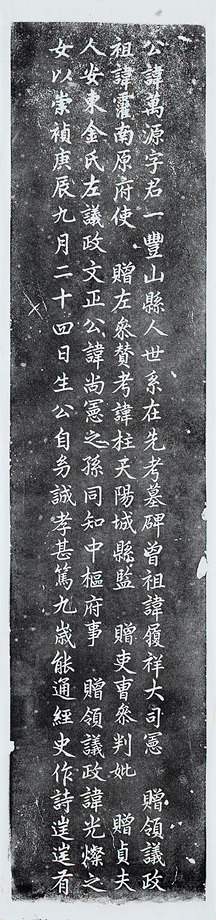 公諱萬源字君一豐山縣人世系在先考墓碑曾祖諱履祥大司憲 贈領議政
祖諱霍南原府使 贈左叅賛考諱柱天陽城縣監 贈吏曹叅判妣 贈貞夫
人安東金氏左議政文正公諱尚憲之孫同知中樞府事 贈領議政諱光燦之
女以崇禎庚辰九月二十四日生公自㓜誠孝甚篤九歲能通經史作詩逞逞有